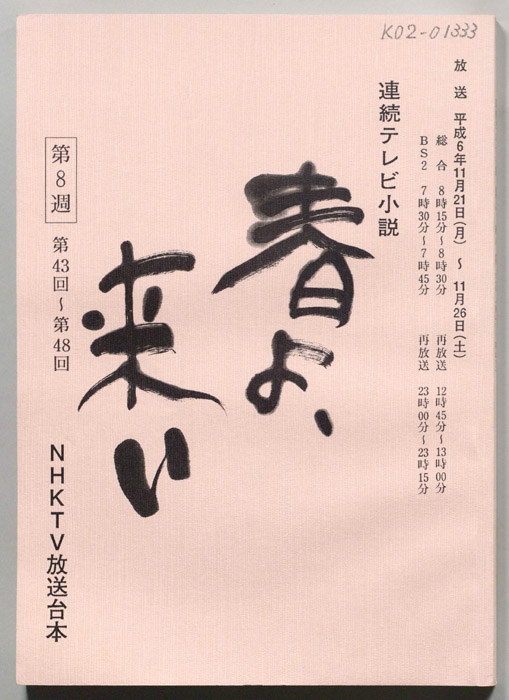 K02-01333
放送 平成6年11月21日(月) ~ 11月26日(土)
総合 8時15分~8時30分 再放送 12時45分~13時00分
BS2 7時30分~7時45分 再放送 23時00分~23時15分
連続テレビ小説
春よ、
来い
第8週
第43回~第48回
NHKTV放送台本